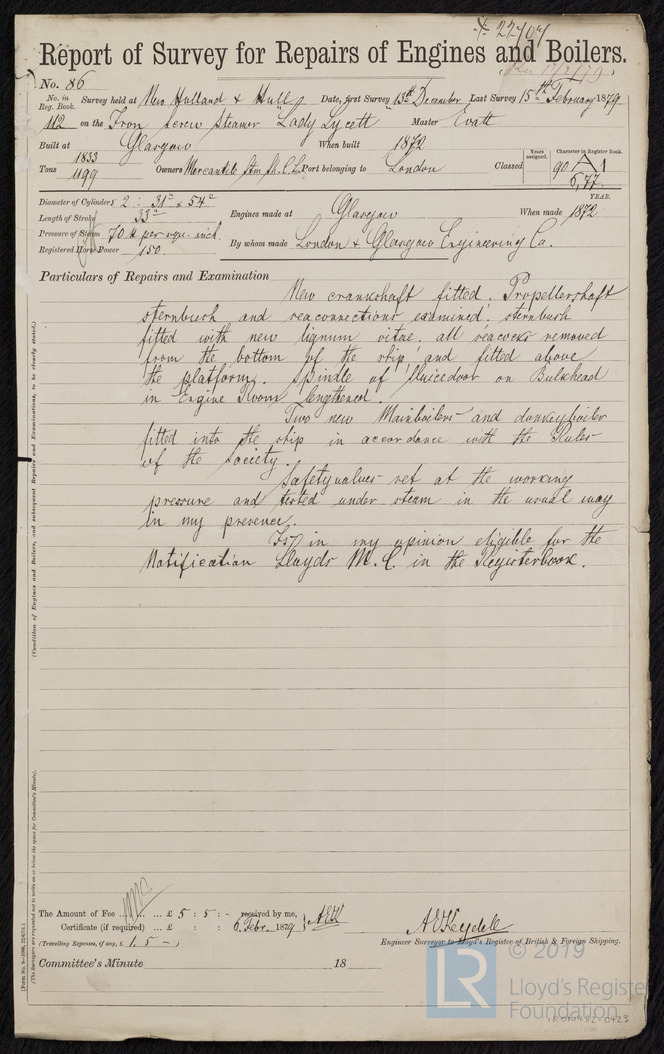 Report of Survey for Repairs of Engines and Boilers.
No. 86
No. in Reg. Book. Survey held at New Holland & Hull Date, first Survey 13th December Last Survey 15th February 1879
112 on the Iron Screw Steamer "Lady Lycett" Master Evatt
Built at Glasgow When built 1872
Tons 1833 1199 Owners Mercantile Stm Sh. C. L. Port belonging to London Classed Years assigned. Character in Register Book. 90 A1 6,77. YEAR.
Diameter of Cylinders 2 : 31" x 54"
Length of Stroke 33" Engines made at Glasgow When made 1872
Pressure of Steam 70 # per sqre. inch
Registered Horse Power 150. By whom made London & Glasgow Engineering Co.
Particulars of Repairs and Examination
New crankshaft fitted. Propellershaft
sternbush and seaconnections examined: sternbush
fitted with new lignum vitae. all seacocks removed
from the bottom of the ship and fitted above
the platform. Spindle of sluicedoor on Bulkhead
in Engine Room lengthened.
Two new Mainboilers and donkeyboiler
fitted into the ship in accordance with the Rules
of the Society.
Safetyvalves set at the working
pressure and tested under steam in the usual way
in my presence.
Is in my opinion eligible for the
Notification Lloyds M.C. in the Registerbook.
(Condition of Engines and Boilers, and subsequent Repairs and Examinations, to be clearly stated.)
(The Surveyors are requested not to write on or below the space for Committee's Minute).
The Amount of Fee ... £ 5 : 5 : - received by me,
Certificate (if required) ... £ : : 6. Febr. 1879 } AEK
(Travelling Expenses, if any, £ 1. 5 -)
A E Keydell
Engineer Surveyor to Lloyd's Register of British & Foreign Shipping.
Committee's Minute 18
LR
© 2019
Lloyd's Register
Foundation